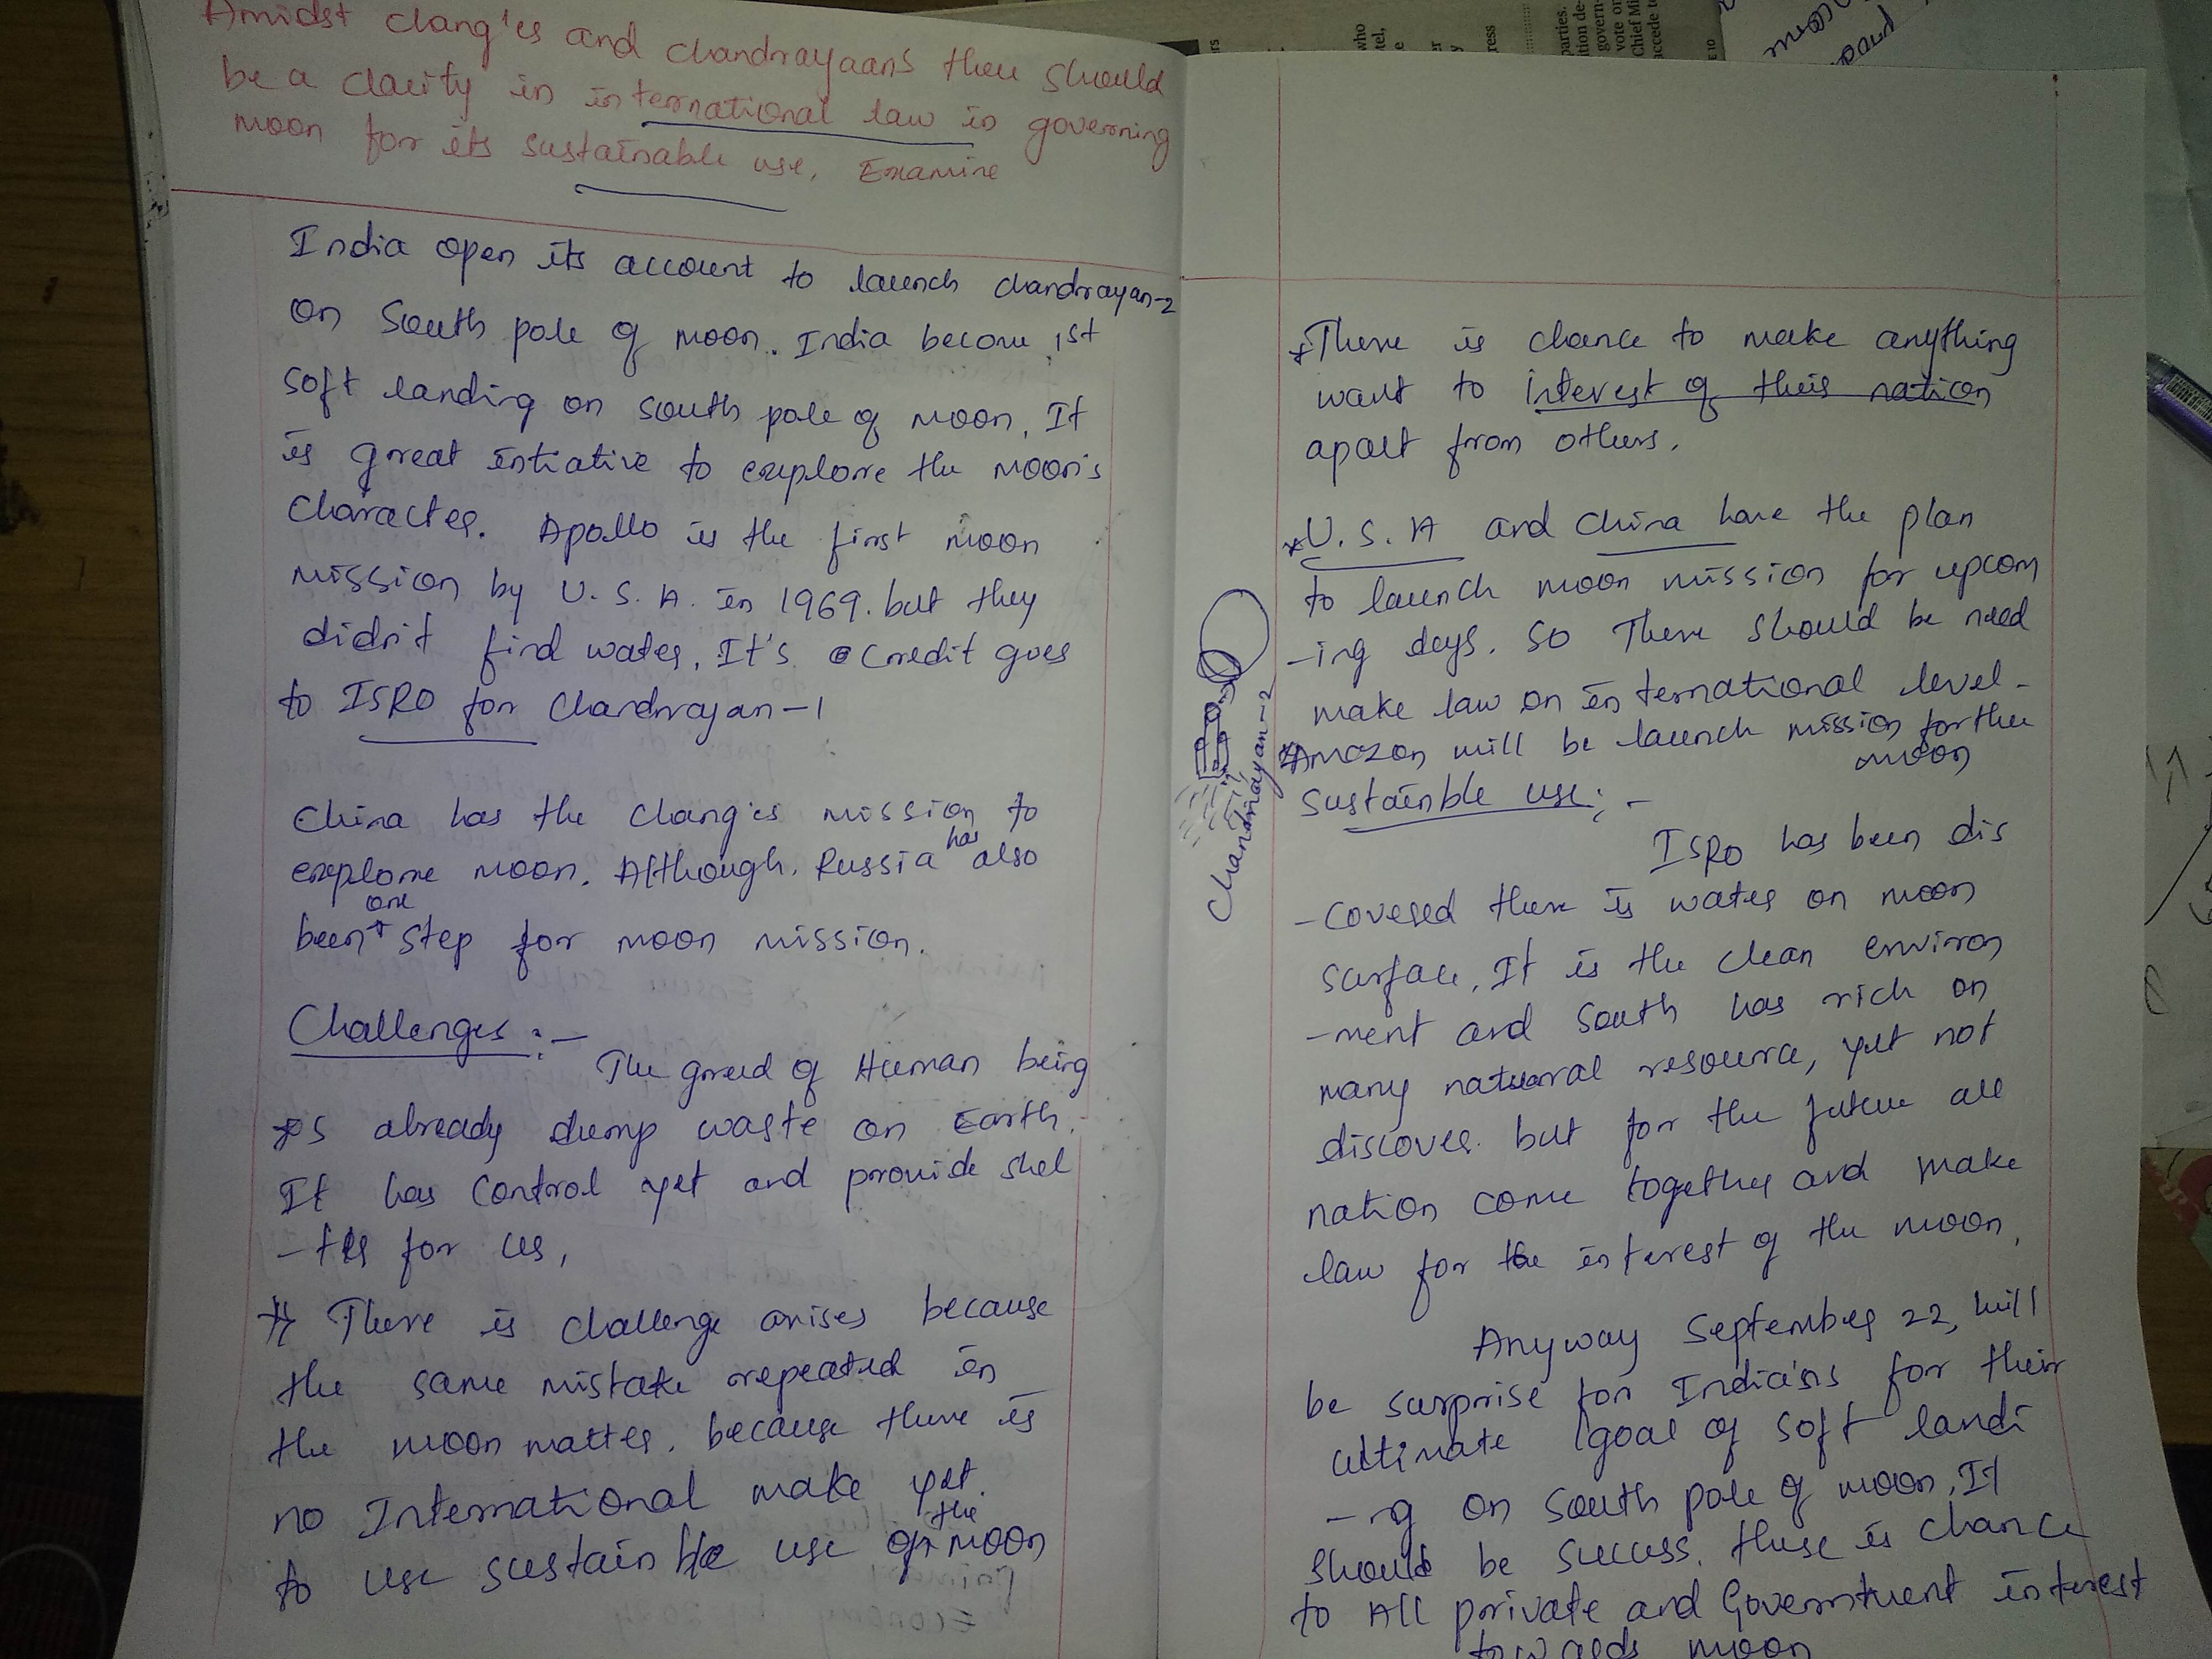 Amidst chang'es and chandrayaans there should
be a clarity in international law in governing
moon for its sustainable use. Examine
India open its account to launch chandrayan-2
on South pole of moon. India become 1st
soft landing on south pole of moon. It
is great intiative to explore the moon's
character. Apollo is the first moon
mission by U.S.A. in 1969. but they
didn't find water, It's credit goes
to ISRO for Chandrayan-1
China has the chang'es mission to
explore moon. Although, Russia has also
been one step for moon mission.
Challenges :-
The greed of Human being
*s already dump waste on Earth.
It has control yet and provide shel
-ter for us,
* There is challenge arises because
the same mistake repeated in
the moon matter. because there is
no International make yet.
to use sustainble use of the moon
Chandrayan-2
*There is chance to make anything
want to interest of their nation
apart from others.
*U.S.A and China have the plan
to launch moon mission for upcom
-ing days. So There should be need
make law on international level.
*Amazon will be launch mission for the
moon
Sustainble use:-
ISRO has been dis
-covered there is water on moon
surface. It is the clean environ
-ment and South has rich on
many natural resource, yet not
discover. but for the future all
nation come together and make
law for the interest of the moon.
Anyway September 22, will
be surprise for Indians for their
ultimate goal of soft landi
-ng on South pole of moon. It
should be success. there is chance
to All private and Government interest
towards moon
who
tel,
ress
parties.
ition de-
govern-
vote on
Chief Mi
accede to